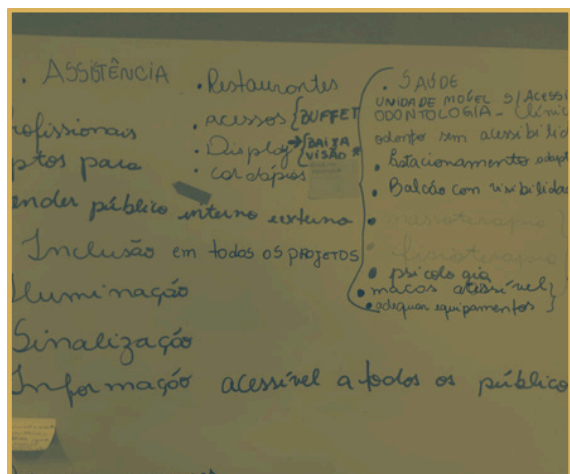 . ASSISTÊNCIA
rofissionais
ptos para
ender público interno externo
Inclusão em todos os PROJETOS
Iluminação
Sinalização
Informação acessível a todos os público
• Restaurantes
• acessos { BUFFET
• Display → { BAIXA VISÃO *
• cardápios
. SAÚDE
UNIDADE MOVEL S/ ACESSI
ODONTOLOGIA - Clínic
odonto sem acessibilid
• Estacionamento adapt
• Balcão com visibilidad
• massoterapia }
• fisioterapia }
• psicologia
• macas acessível }
• adequar equipamentos }